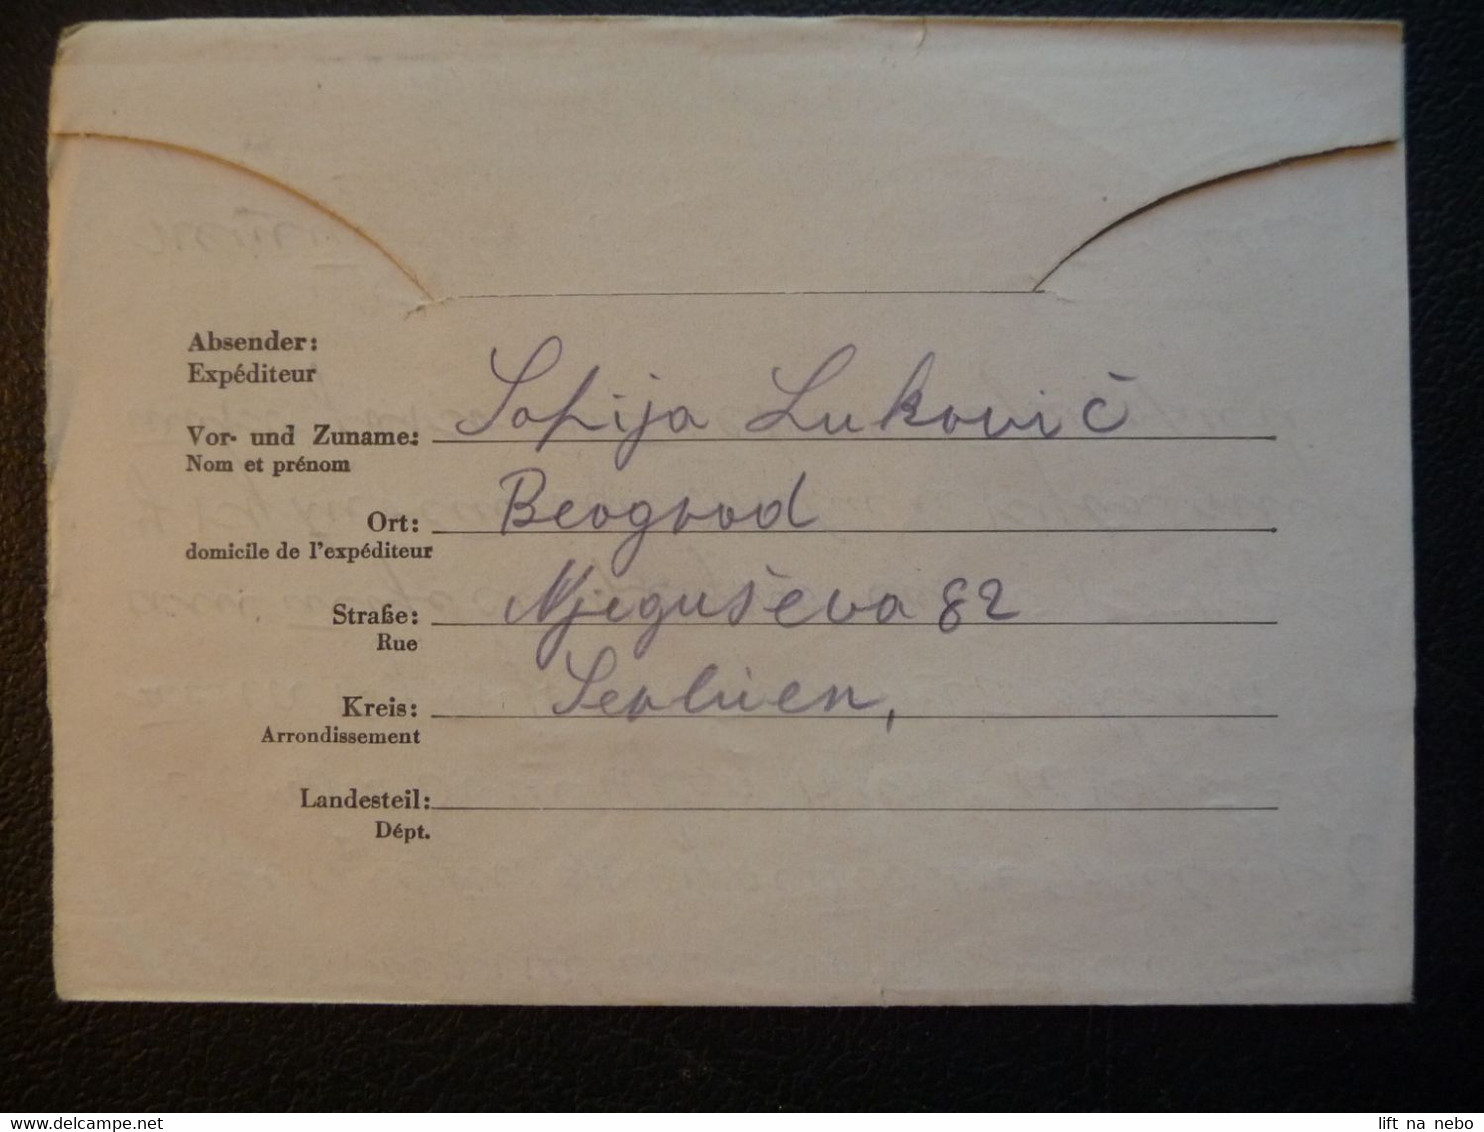 Absender:
Expéditeur
Vor- und Zuname: Sofija Luković
Nom et prénom
Ort: Beograd
domicile de l'expéditeur
Straße: Njeguševa 82
Rue
Kreis: Serbien,
Arrondissement
Landesteil:
Dépt.
www.delcampe.net
lift na nebo